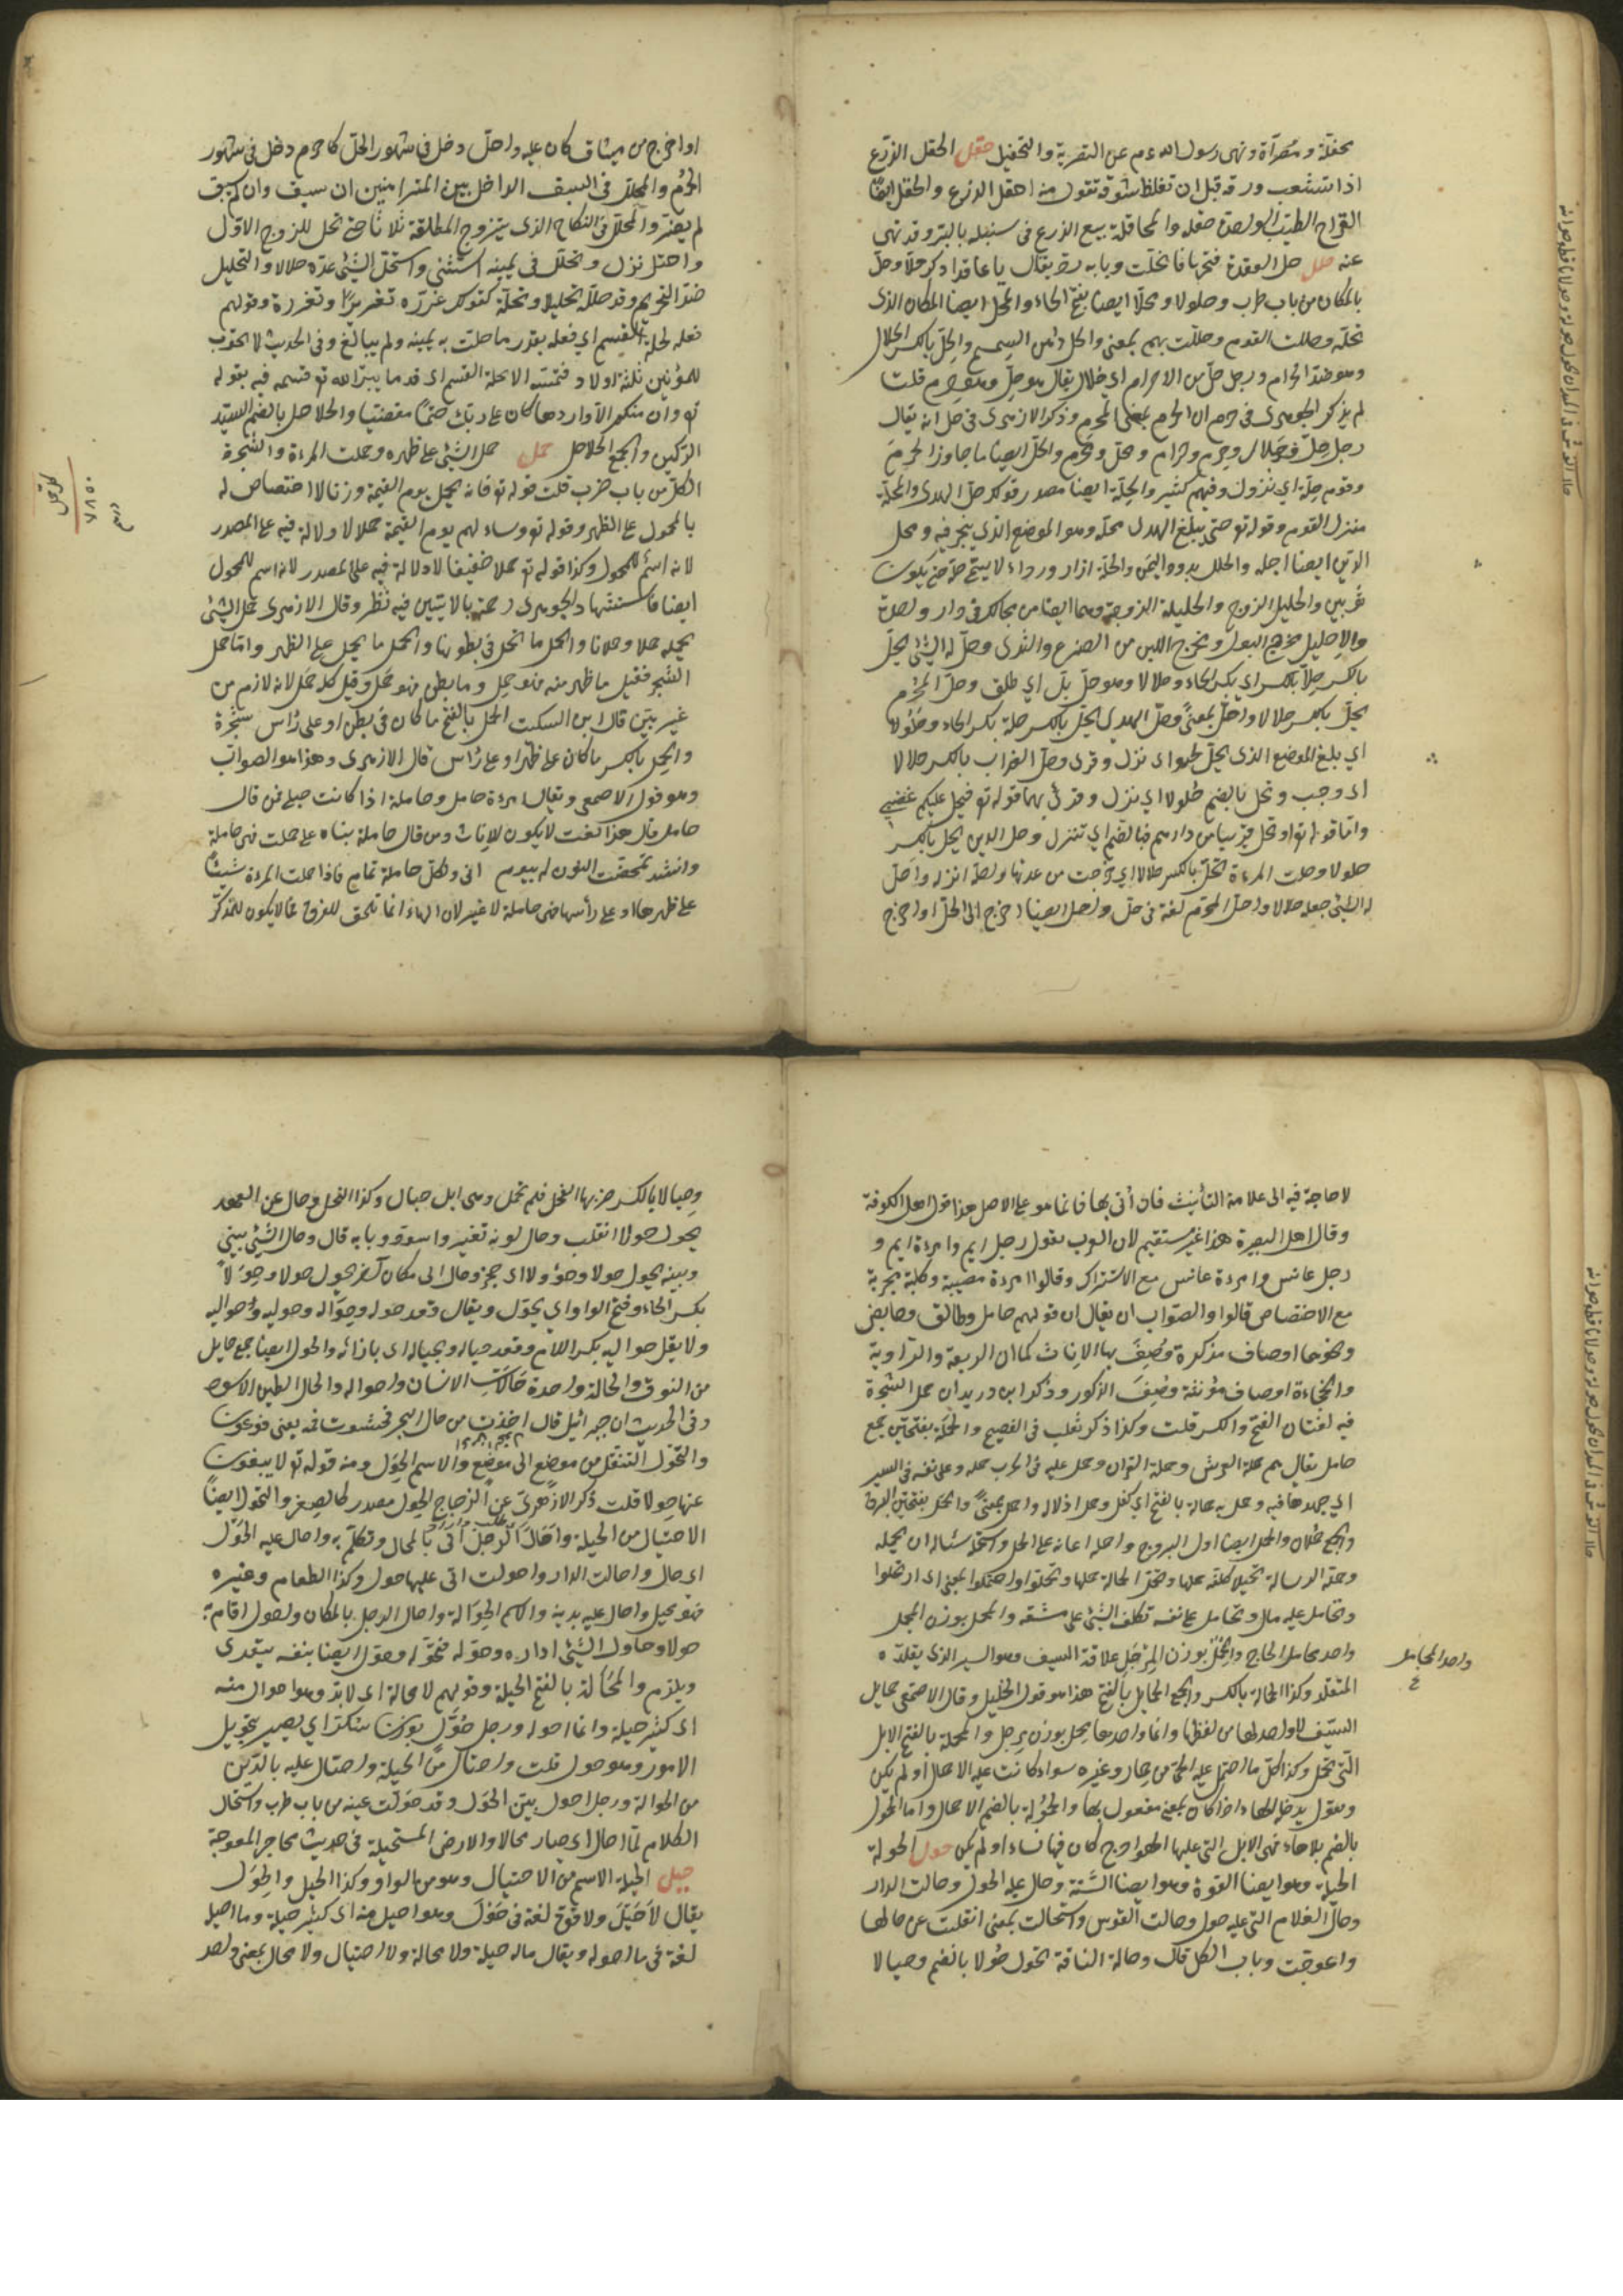 محفلة و مصرّاة ونهى رسول الله عم عن التصرية والتحفيل حقل الحقل الزرع
اذا تشعب ورقه قبل ان تغلظ سوقه تقول منه احقل الزرع والحقل ايضا
القراح الطيب الواحدة حقلة والمحاقلة بيع الزرع فى سنبله بالبر وقد نهى
عنه حلل حل العقدة فتحها فانحلت وبابه رد يقال يا عاقد اذكر حلّا وحلّ
بالمكان من باب رد و حلولا ومحلّا ايضا بفتح الحاء والمحل ايضا المكان الذى
تحلّه وحللت القوم وحللت بهم بمعنى والحل دهن السمسم والحِلّ بالكسر الحلال
وهو ضد الحرام ورجل حلّ من الاحرام اي حلال يقال هو حلّ وهو حرم قلت
لم يذكر الجوهرى فى حرم ان الحرم بمعنى المحرم وذكر الازهرى فى حل انه يقال
رجل حلّ وحلال وحرم وحرام و محلّ ومحرم والحلّ ايضا ما جاوز الحرم
وقوم حِلّة اي نزول وفيهم كثير والحِلّة ايضا مصدر قولك حلّ الهدى والمحلّة
منزل القوم وقوله تع حتى يبلغ الهدى محلّه وهو الموضع الذى ينحر فيه ومحل
الدّين ايضا اجله والحلل برود اليمن والحلّة ازار ورداء لا يسمّى حلّة حتى يكون
ثوبين والحليل الزوج والحليلة الزوجة وهما ايضا من يحالّك فى دار واحدة
والاحليل مخرج البول ومخرج اللبن من الضرع والثدى وحلّ له الشئ يحلّ
بالكسر حِلّا بالكسر اي بكسر الحاء وحلالا وهو حلّ بلّ اي طلق وحلّ المحرم
يحلّ بالكسر حلالا واحلّ بمعنًى وحلّ الهدى يحلّ بالكسر حلة بكسر الحاء وحُلُولا
اي بلغ الموضع الذى يحلّ فيه نحره وحلّ العذاب يحل بالكسر حلالا
اى وجب ويحل بالضم حلولا اي نزل وقرئ بهما قوله تع فيحل عليكم غضبى
واما قوله تع او تحل قريبا من دارهم فبالضم اي تنزل وحل الدين يحل بالكسر
حلولا وحلت المرءة تحلّ بالكسر حلالا اي خرجت من عدتها واحلّه انزله واحلّ
له الشئ جعله حلالا واحلّ المحرم لغة فى حلّ واحل ايضا اخرج الى الحلّ او اخرج
او اخرج من ميثاق كان عليه واحلّ دخل فى شهور الحلّ كاحرم دخل فى شهور
الحرُم والمحلّل فى السبق الداخل بين المتراهنين ان سبق وان لم يسبق
لم يغرم والمحلّل فى النكاح الذى يتزوج المطلقة ثلاثا حتى تحل للزوج الاول
واحتل نزل وتحلل فى يمينه استثنى واستحل الشئ عدّه حلالا والتحليل
ضد التحريم وقد حلّله تحليلا وتحلّة كقولك غرّره تغريرًا وتغررة وقولهم
فعله تحلة القسم اي فعله بقدر ما حلت به يمينه ولم يبالغ وفى الحديث لا يموت
للمؤمنين ثلثة اولاد فتمسه النار الا تحلة القسم اى قدر ما يبرّ الله تع قسمه فيه بقوله
تع وان منكم الا واردها كان على ربك حتمًا مقضيا والحلاحل بالضم السيّد
الركين والجمع الحلاحل حمل حمل الشئ على ظهره وحملت المرءة والشجرة
الكل من باب ضرب قلت قوله تع فانه يحمل يوم القيمة وزرا لا اختصاص له
بالمحمول على الظهر وقوله تع وساء لهم يوم القيمة حملا لا دلالة فيه على المصدر
لانه اسم للمحمول وكذا قوله تع حملا خفيفا لا دلالة فيه على المصدر لانه اسم للمحمول
ايضا فاستشهاد الجوهرى رحمه بالآيتين فيه نظر وقال الازهرى حمل الشئ
يحمله حملا وحملانا والحمل ما تحمل فى بطونها والحمل ما يحمل على الظهر واما حمل
الشجر فقيل ما ظهر منه فهو حِمل وما بطن فهو حَمل وقيل كله حَمل لانه لازم من
غير بيّن قال ابن السكت الحمل بالفتح ما كان فى بطن او على رأس شجرة
والحِمل بالكسر ما كان على ظهر او على رأس قال الازهرى وهذا هو الصواب
وهو قول الاصمعى ويقال امرءة حامل وحاملة اذا كانت حبلى فمن قال
حامل قال هذا نعت لا يكون للاناث ومن قال حاملة بناه على حملت فهى حاملة
وانشد تمخضت المنون له بيوم انى ولكل حاملة تمام فاذا حملت المرءة شيئًا
على ظهرها او على رأسها فهى حاملة لا غير لان الهاء انما تلحق للفرق فما لا يكون للمذكر
كلر حمل
٧٨٥٠
لا حاجة فيه الى علامة التأنيث فان أتى بها فانما هو على الاصل هذا قول اهل الكوفة
وقال اهل البصرة هذا غير مستقيم لان العرب تقول رجل ايم وامرءة ايم و
رجل عانس وامرءة عانس مع الاشتراك وقالوا امرءة مصبية وكلبة مجرية
مع الاختصاص قالوا والصواب ان يقال ان قولهم حامل وطالق وحايض
ونحوها اوصاف مذكرة وُصِفَ بها الاناث كما ان الربعة والراوية
والخجاءة اوصاف مؤنثة وُصِفَ الذكور وذكر ابن دريد ان حمل الشجرة
فيه لغتان الفتح والكسر قلت وكذا ذكر ثعلب فى الفصيح والحَمَلة بفتحتين جمع
حامل يقال هم حملة العرش وحملة القرآن وحمل عليه فى الحرب حملة وعلى نفسه فى السير
اي جهدها فيه وحمل به حمالة بالفتح اي كفل وحمل ادلاله واحتمل بمعنًى والحَمَل بفتحتين البرق
والجمع حُملان والحمل ايضا اول البروج واحمله اعانه على الحمل واستحمله سئاله ان يحمله
وحمّله الرسالة تحميلا كلفه حملها وتحمّل الحمالة حملها وتحمّلوا واحتملوا بمعنى اى ارتحلوا
وتحامل عليه مال وتحامل على نفسه تكلف الشئ على مشقة والمحمل بوزن المجلس
واحد محامل الحاج والمِحْمَل بوزن المِرْجَل علاقة السيف وهو السير الذى يقلده
المتقلد وكذا الحمالة بالكسر والجمع الحمايل بالفتح هذا هو قول الخليل وقال الاصمعى حمايل
السيف لا واحد لها من لفظها وانما واحدها محمل بوزن مِرجل والحمولة بالفتح الابل
التى تحمل وكذا كلّ ما احتمل عليه الحىّ من حمار وغيره سواء كانت عليه الاحمال او لم يكن
وفعول يدخله الهاء اذا كان بمعنى مفعول بها والحُمُولة بالضم الاحمال واما الحمول
بالضم بلا هاء فهى الابل التى عليها الهوادج كان فيها نساء او لم يكن حول الحولة
الحيلة وهو ايضا القوة وهو ايضا السَّنة وحال عليه الحول وحالت الدار
وحال الغلام اتى عليه حول وحالت القوس واستحالت بمعنى انقلبت عن حالها
واعوجّت وباب الكل قال وحالة الناقة تحول حُؤولا بالضم وحيالا
واحد المحامل
وحِيالا بالكسر ضربها الفحل فلم تحمل وهى ابل حيال وكذا النخل وحال عن العهد
يحول حولا انقلب وحال لونه تغير واسودّ وبابه قال وحال الشئ بينى
وبينه يحول حولا وحُؤولا اى حجز وحال الى مكان آخر يحول حولا وحِوَلًا
بكسر الحاء وفتح الواو اي تحوّل ويقال قعد حوله وحوَاله وحوليه وحواليه
ولا يقل حواليه بكسر اللام وقعد حياله وبحياله اى بازائه والحول ايضا جمع حايل
من النوق والحالة واحدة حالات الانسان واحواله والحال الطين الاسود
وفى الحديث ان جبرائيل قال اخذت من حال البحر فحشوت فمه يعنى فرعون
والتحوّل التنقل من موضع الى موضع والاسم الحِوَل ومنه قوله تع لا يبغون
عنها حولا قلت ذكر الازهرى عن الزجاج الحِوَل مصدر كالصِغر والتحول ايضًا
الاحتيال من الحيلة واحال الرجل أتى بالمحال وتكلّم به واحال عليه الحول
اى حال واحالت الدار واحولت اتى عليها حول وكذا الطعام وغيره
فهو محيل واحال عليه بدينه والاسم الحِوَالة واحال الرجل بالمكان واحول اقام به
حولا وحاول الشئ اراده وحوّله فتحوّل وحوّل ايضا بنفسه يتعدى
ويلزم والمَحَالة بالفتح الحيلة وقولهم لا محالة اى لا بدّ وهو احول منه
اى كثير حيلة وانا احوله ورجل حُوَّل بوزن سكّر اي بصير بتحويل
الامور وهو حول قلت واحتال من الحيلة واحتال عليه بالدّين
من الحوالة ورجل احول بيّن الحول وقد حولت عينه من باب طرب واستحال
الكلام لمّا احال اى صار محالا والارض المستحيلة فى حديث مجاهد المعوجة
حيل الحيلة الاسم من الاحتيال وهو من الواو وكذا الحيل والحِوَل
يقال لا حَيْلَ ولا قوة لغة فى حَوْلَ وهو احيل منه اى كثير حيلة وما احيله
لغة فى ما احوله ويقال ما له حيلة ولا محالة ولا احتيال ولا محال بمعنى واحد